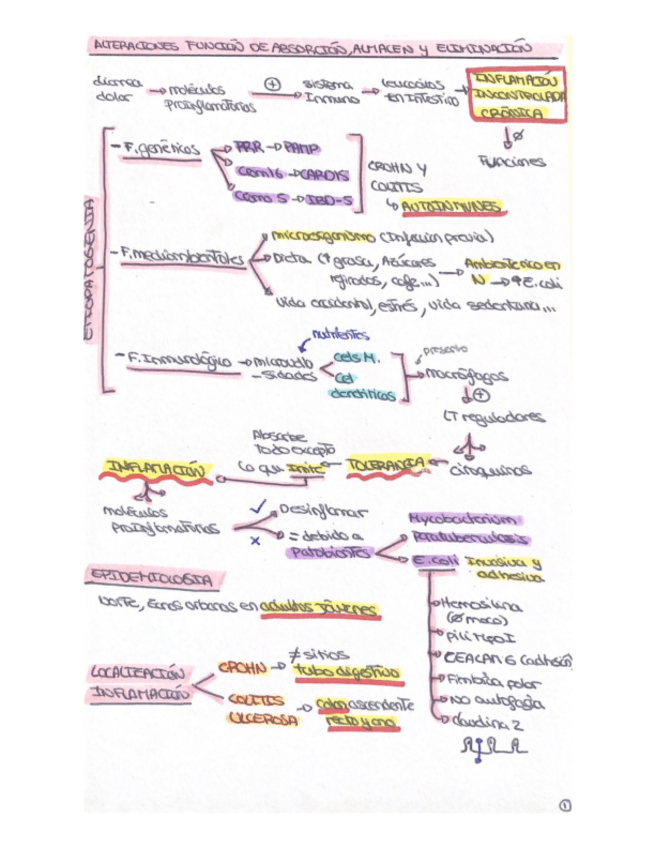 ALTERACIONES FUNCIÓN DE ABSORCIÓN, ALMACEN Y ELIMINACIÓN
diarrea dolor → moléculas proinflamatorias
⊕ → sistema inmune → leucocitos en intestino →
INFLAMACIÓN INCONTROLADA CRÓNICA
↓ ∅
Funciones
ETIOPATOGENIA
- F. genéticos
PRR → PAMP
Crom 16 → CARD15
Cromo 5 → IBD-5
CROHN Y COLITIS
↳ AUTOINMUNES
- F. medioambientales
microorganismo (Infección previa)
Dieta (↑ grasa, Azúcares refinados, café...) → Ambiente rico en N → ↑ E. coli
Vida occidental, estrés, vida sedentaria...
- F. Inmunológico → microvello-sidades
nutrientes
céls M.
cel dendríticas
presento
→ macrófagos
↓ ⊕
LT reguladores
citoquinas
TOLERANCIA
Absorbe todo excepto lo que irrite
INFLAMACIÓN
moléculas Proinflamatorias
✓ Desinflamar
x = debido a patobiontes
Mycobacterium
Paratuberculosis
E. coli Invasiva y adhesiva
Hemosilina
Pili tipo I
CEACAM 6 (adhesión)
Fimbria polar
No autofagia
Claudina 2
EPIDEMIOLOGIA
Norte, áreas urbanas en adultos jóvenes
LOCALIZACIÓN INFLAMACIÓN
CROHN → ≠ sitios tubo digestivo
COLITIS ULCEROSA → colon ascendente recto y ano
1